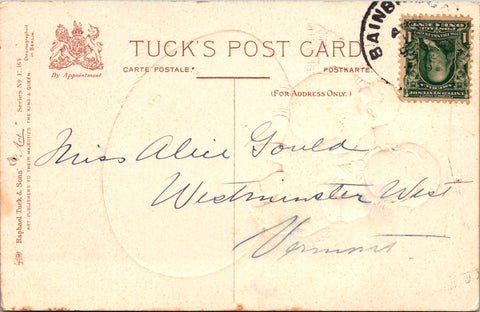 TUCK'S POST CARD
CARTE POSTALE.
POSTKARTE.
(FOR ADDRESS ONLY.)
By Appointment
Raphael Tuck & Sons'
Series No E. 165
ART PUBLISHERS TO THEIR MAJESTIES THE KING & QUEEN.
Chromographed in Berlin.
BAINB
1
1
Miss Alice Gould
Westminster West
Vermont.